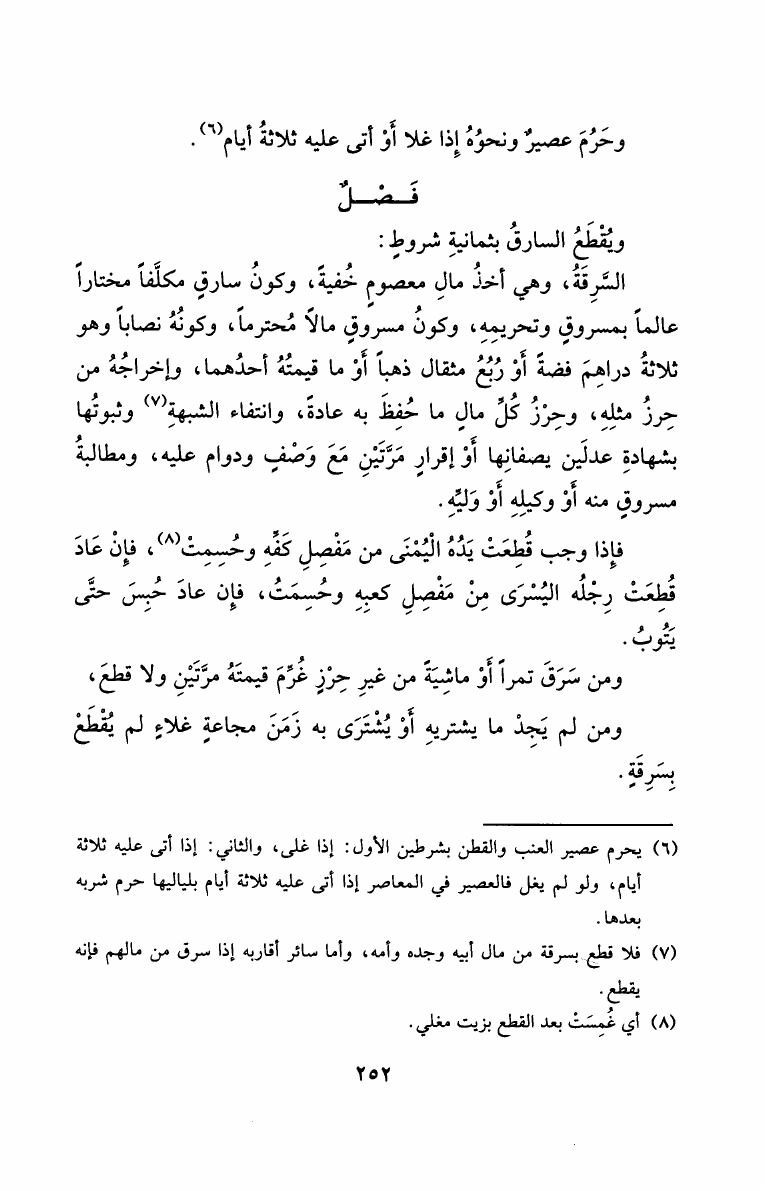 وحَرُمَ عصيرٌ ونحوُهُ إِذا غلا أَوْ أتى عليه ثلاثةُ أيام(٦) .
فَـصْـلٌ
ويُقْطَعُ السارقُ بثمانيةِ شروطٍ :
السَّرِقَةُ، وهي أخذُ مالٍ معصومٍ خُفيةً، وكونُ سارقٍ مكلَّفاً مختاراً
عالماً بمسروقٍ وتحريمِهِ، وكونُ مسروقٍ مالاً مُحترماً، وكونُهُ نصاباً وهو
ثلاثةُ دراهِمَ فضةً أَوْ رُبُعُ مثقال ذهباً أَوْ ما قيمتُهُ أحدُهما، وإخراجُهُ من
حِرزُ مثلِهِ، وحِرْزُ كُلِّ مالٍ ما حُفِظَ به عادةً، وانتفاء الشبهةِ(٧) وثبوتُها
بشهادةِ عدلَين يصفانِها أَوْ إقرارٍ مَرَّتَيْنِ مَعَ وَصْفٍ ودوام عليه، ومطالبةُ
مسروقٍ منه أَوْ وكيلِهِ أَوْ وَليِّهِ.
فإذا وجب قُطِعَتْ يَدُهُ الْيُمْنَى من مَفْصِلِ كَفِّهِ وحُسِمِتْ(٨)، فإنْ عَادَ
قُطِعَتْ رِجْلُه اليُسْرَى مِنْ مَفْصِلِ كعبِهِ وحُسِمَتُ، فإن عادَ حُبِسَ حتَّى
يَتُوبُ.
ومن سَرَقَ تمراً أَوْ ماشِيَةً من غيرِ حِرْزٍ غُرِّمَ قيمتَهُ مرَّتَيْنِ ولا قطعَ،
ومن لم يَجِدْ ما يشتريهِ أَوْ يُشْتَرَى به زَمَنَ مجاعةٍ غلاءٍ لم يُقْطَعْ
بِسَرِقَةٍ.
(٦) يحرم عصير العنب والقطن بشرطين الأول: إذا غلى، والثاني: إذا أتى عليه ثلاثة
أيام، ولو لم يغل فالعصير في المعاصر إذا أتى عليه ثلاثة أيام بلياليها حرم شربه
بعدها.
(٧) فلا قطع بسرقة من مال أبيه وجده وأمه، وأما سائر أقاربه إذا سرق من مالهم فإنه
يقطع.
(٨) أي غُمِسَتْ بعد القطع بزيت مغلي.
٢٥٢